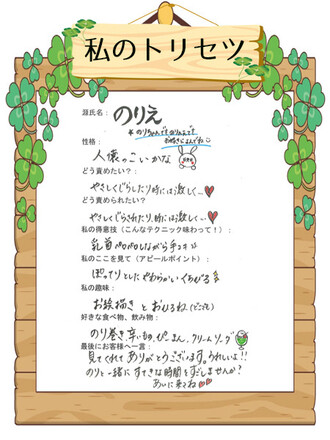 私のトリセツ
源氏名： のりえ
*のりちゃんでものりえでもお好きによんでね
性格：
人懐っこいかな
どう責めたい？：
やさしくじらしたり時には激しく…
どう責められたい？
やさしくじらされたり、時には激しく…
私の得意技（こんなテクニック味わって！）：
乳首ペロペロしながら手コキ
私のここを見て（アピールポイント）：
ぽってりとしたやわらかいくちびる
私の趣味：
お絵描き と おひるね
好きな食べ物、飲み物：
のり巻き、辛いもの、ぴーまん、クリームソーダ
最後にお客様へ一言：
見てくれてありがとうございます。うれしいよ!!
のりと一緒にすてきな時間をすごしませんか？
あいに来てね